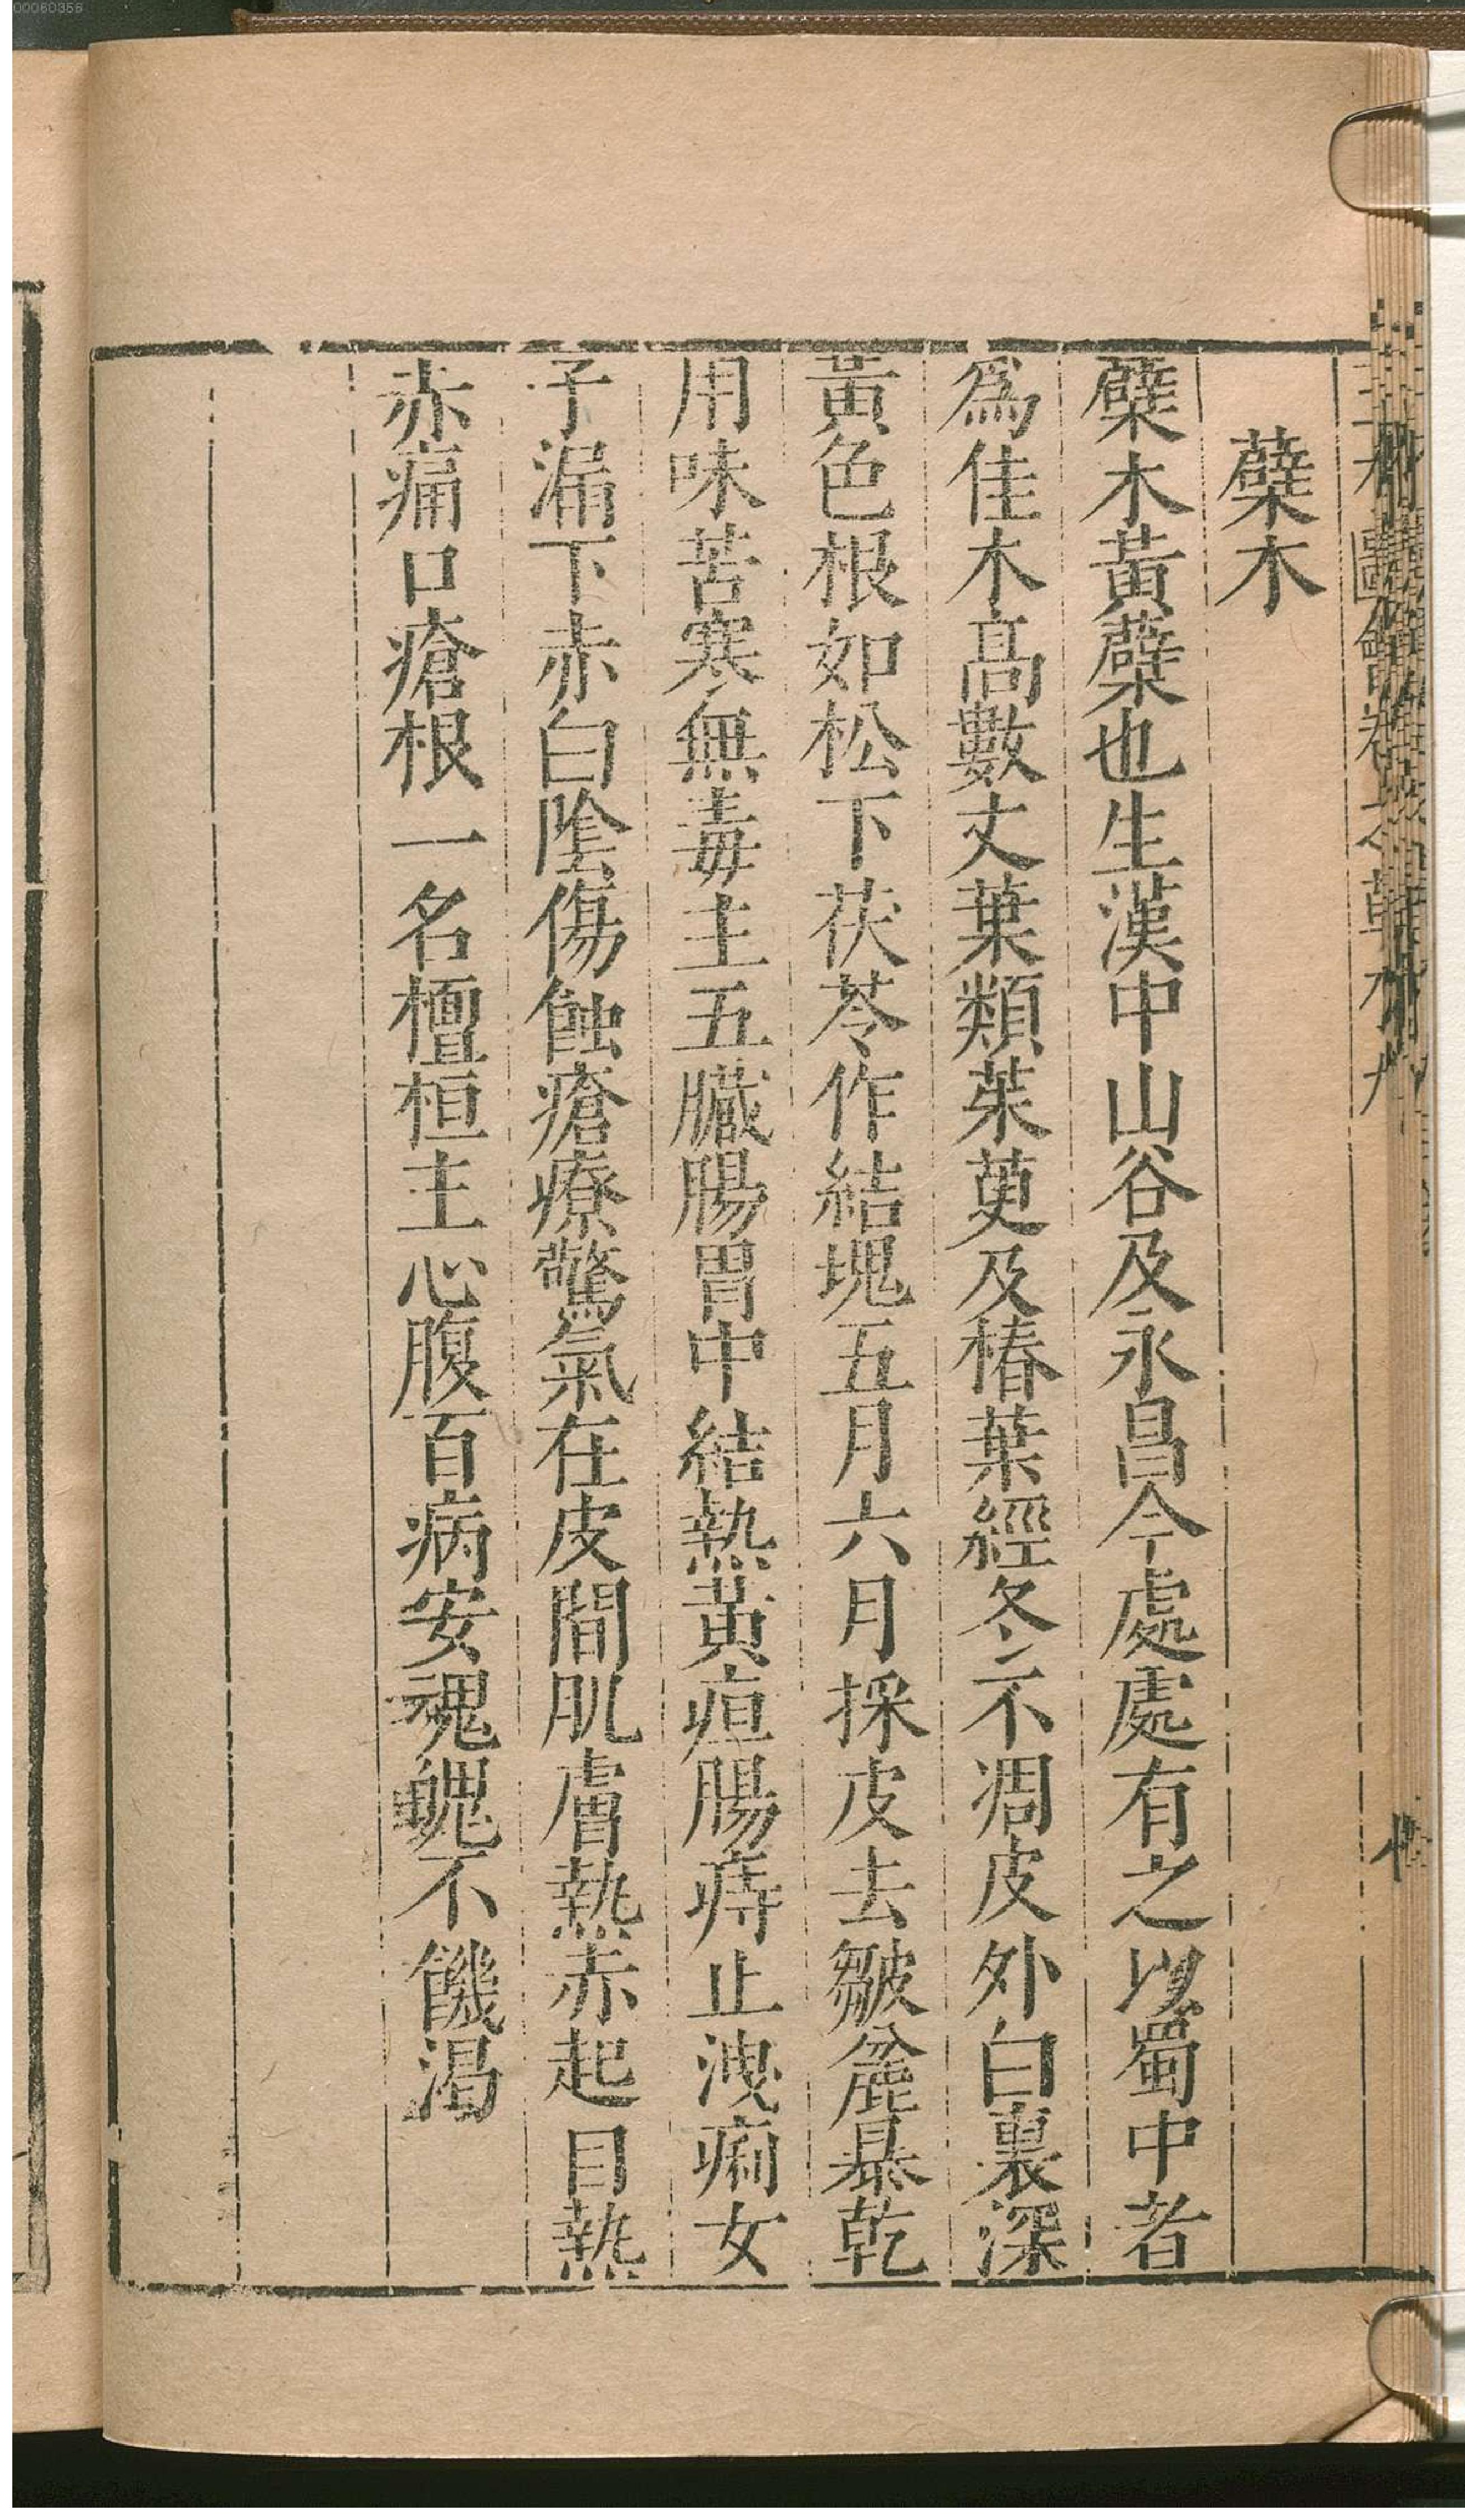 00060356
蘗木
蘗木黃蘗也生漢中山谷及永昌今處處有之以蜀中者
爲佳木高數丈葉類茱萸及椿葉經冬不凋皮外白裏深
黃色根如松下茯苓作結塊五月六月採皮去皺麄暴乾
用味苦寒無毒主五臟腸胃中結熱黃疸腸痔止洩痢女
子漏下赤白陰傷蝕瘡療驚氣在皮間肌膚熱赤起目熱
赤痛口瘡根一名檀桓主心腹百病安魂魄不饑渴